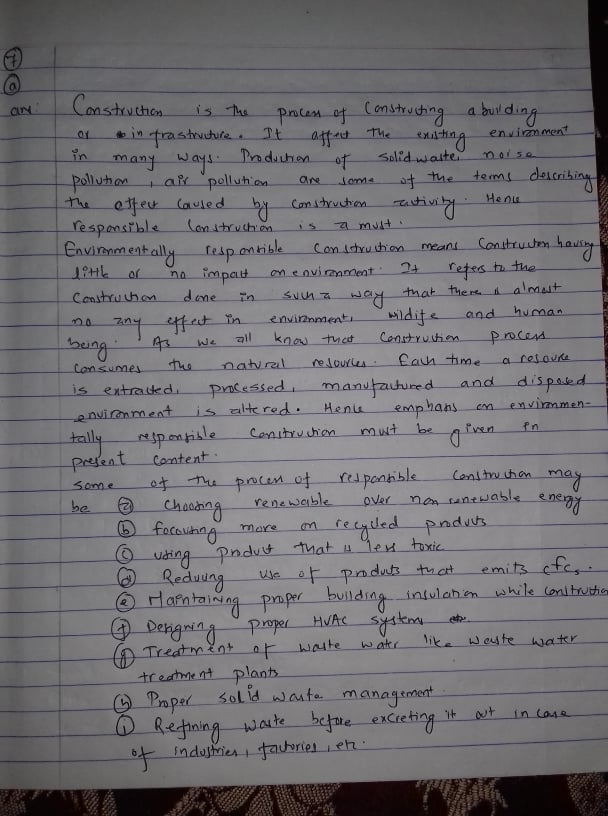 7
a
ans: Construction is the process of Constructing a building
or in frastructure. It affect the existing environment
in many ways. Production of solid waste, noise
pollution, air pollution are some of the terms describing
the effect caused by construction activity. Hence
responsible Construction is a must.
Environmentally responsible Construction means Construction having
little or no impact on environment. It refers to the
Construction done in such a way that there is almost
no any effect in environment, wildife and human
being. As we all know that Construction process
consumes the natural resources. Each time a resource
is extracted, processed, manufactured and disposed
environment is altered. Hence emphasis on environmen-
tally responsible construction must be given in
present content.
Some of the process of responsible construction may
be a Choosing renewable over non renewable energy
b focousing more on recycled products
c using product that is less toxic
d Reducing use of products that emits cfcs.
e Maintaining proper building insulation while construction
f Designing proper HVAC system
g Treatment of waste water like waste water
treatment plants
h Proper solid waste management.
i Refining waste before excreting it out in case
of industries, factories, etc.